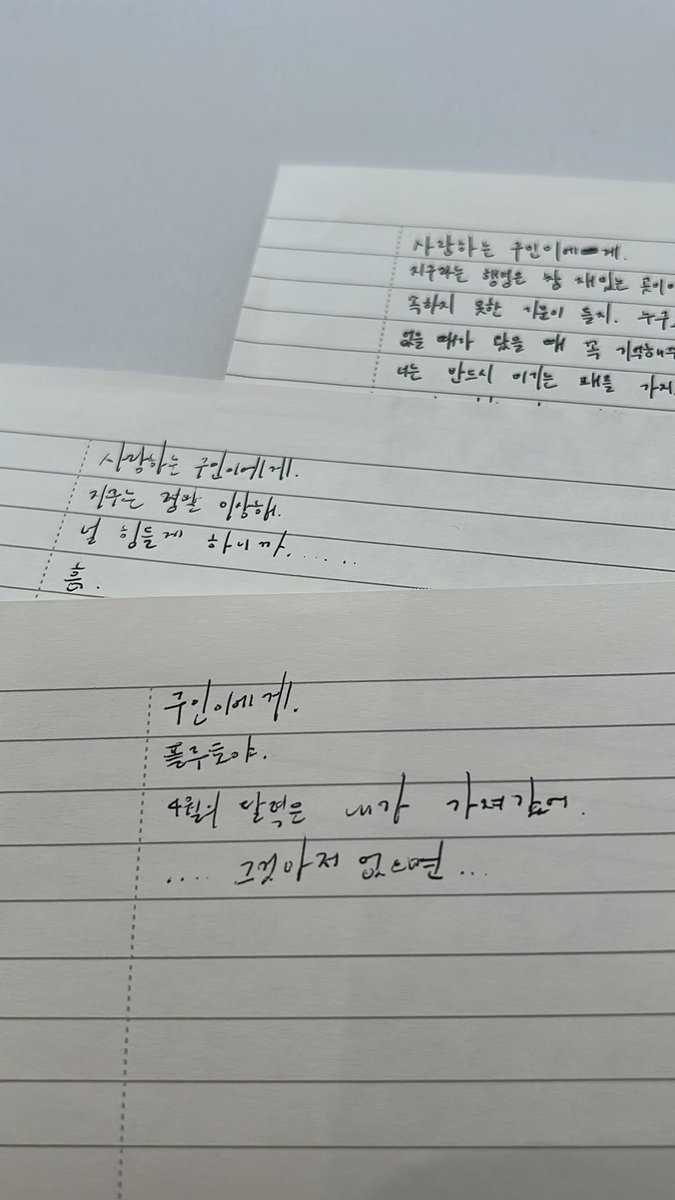 사랑하는 구인이에게.
지구라는 행성은 참 재밌는 곳이야
속하지 못한 기분이 들지. 누구
없을 때가 왔을 때 꼭 기억해
너는 반드시 이기는 패를 가지
사랑하는 구인이에게.
지구는 정말 이상해.
널 힘들게 하니까......
흠.
구인이에게.
플루토야.
4월의 달력은 내가 가져갔어.
.... 그것마저 없으면...